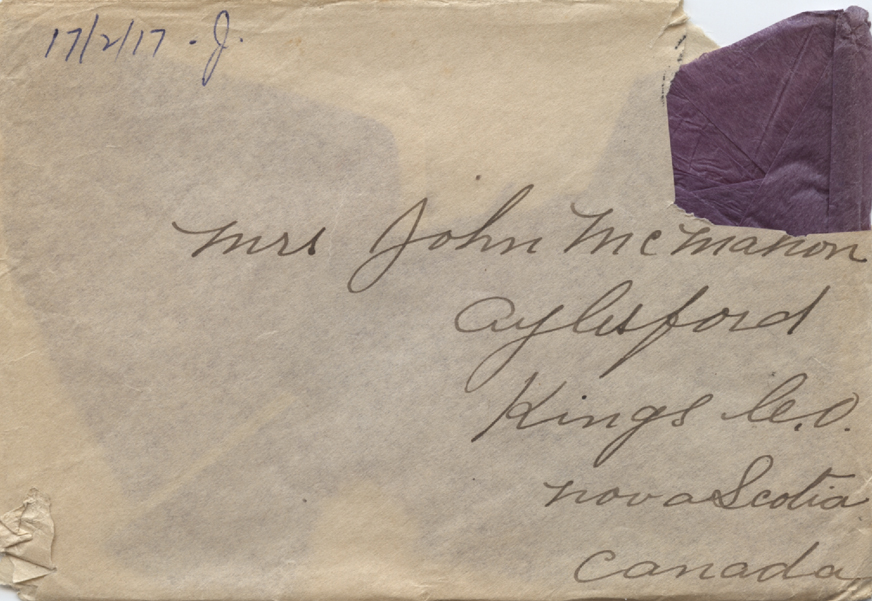 17/2/17 - J.
Mrs John McMahon
Aylesford
Kings Co.
Nova Scotia
Canada